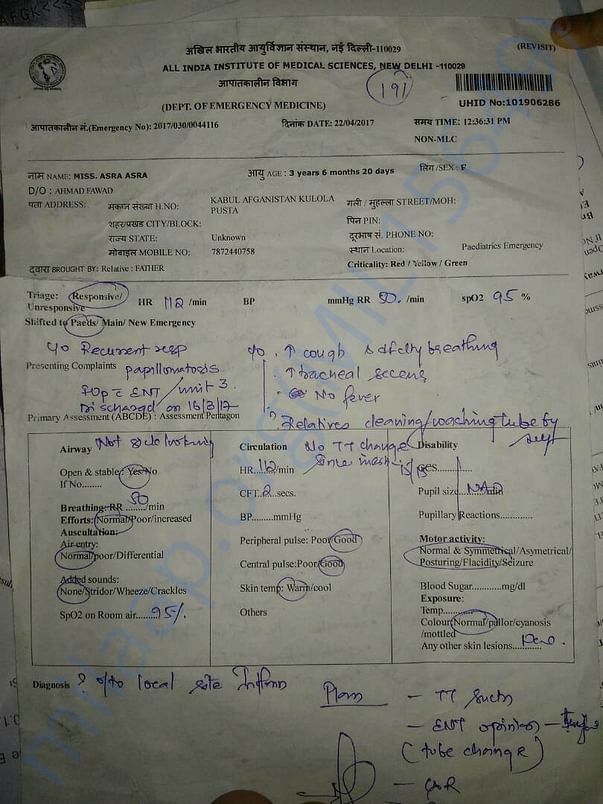 अखिल भारतीय आयुर्विज्ञान संस्थान, नई दिल्ली-110029
(REVISIT)
ALL INDIA INSTITUTE OF MEDICAL SCIENCES, NEW DELHI -110029
आपातकालीन विभाग
(DEPT. OF EMERGENCY MEDICINE)
191
UHID No:101906286
आपातकालीन नं.(Emergency No): 2017/030/0044116
दिनांक DATE: 22/04/2017
समय TIME: 12:36:31 PM
NON-MLC
नाम NAME: MISS. ASRA ASRA
आयु AGE : 3 years 6 months 20 days
लिंग /SEX : F
D/O : AHMAD FAWAD
पता ADDRESS:
मकान संख्या H.NO:
KABUL AFGANISTAN KULOLA PUSTA
गली / मुहल्ला STREET/MOH:
शहर/प्रखंड CITY/BLOCK:
पिन PIN:
राज्य STATE:
Unknown
दूरभाष सं. PHONE NO:
मोबाइल MOBILE NO:
7872440758
स्थान Location:
Paediatrics Emergency
द्वारा BROUGHT BY: Relative : FATHER
Criticality: Red / Yellow / Green
Triage: Responsive/ HR 112 /min BP mmHg RR 30. /min spO2 95 %
Unresponsive
Shifted to Paeds/ Main/ New Emergency
Recurrent resp
papillomatosis
↑ cough & difclty breathing
↑ tracheal
No fever
Presenting Complaints
ENT / unit 3
on 16/3/17
Relatives cleaning/ tube by
Primary Assessment (ABCDE) : Assessment Pentagon
Airway Not
Open & stable: Yes/No
If No.......
Breathing: RR 30 /min
Efforts: Normal/Poor/increased
Auscultation:
Air entry:
Normal/poor/Differential
Added sounds:
None/Stridor/Wheeze/Crackles
SpO2 on Room air.... 95%.
Circulation No TT change
HR. 112 /min
CFT. 2 secs.
BP........mmHg
Peripheral pulse: Poor/Good
Central pulse:Poor/Good
Skin temp: Warm/cool
Others
Disability
GCS 15/15
Pupil size NAD
Pupillary Reactions............
Motor activity:
Normal & Symmetrical/Asymetrical/
Posturing/Flacidity/Seizure
Blood Sugar............mg/dl
Exposure:
Temp............
Colour:Normal/pallor/cyanosis
/mottled
Any other skin lesions............
Diagnosis ? local site
Plan - TT
- ENT opinion
(tube change)